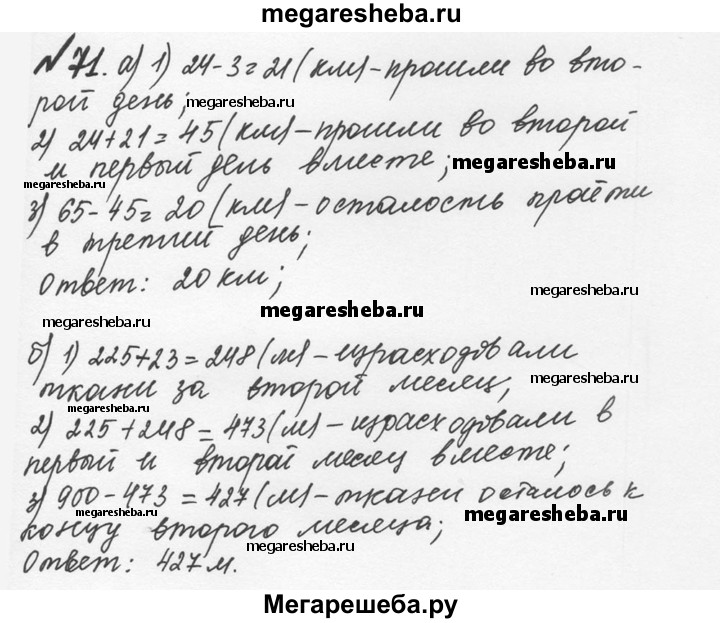 megaresheba.ru
№71. а) 1) 24-3=21 (км)-прошли во вто-
рой день; megaresheba.ru
2) 24+21=45 (км)-прошли во второй
и первый день вместе; megaresheba.ru
megaresheba.ru
3) 65-45=20 (км)-осталось пройти
в третий день;
Ответ: 20 км;
megaresheba.ru
megaresheba.ru
б) 1) 225+23=248 (м)-израсходовали
ткани за второй месяц; megaresheba.ru
megaresheba.ru
2) 225+248=473 (м)-израсходовали в
первый и второй месяц вместе;
3) 900-473=427 (м)-ткани осталось к
концу второго месяца; megaresheba.ru
Ответ: 427 м. megaresheba.ru
Мегарешеба.ру